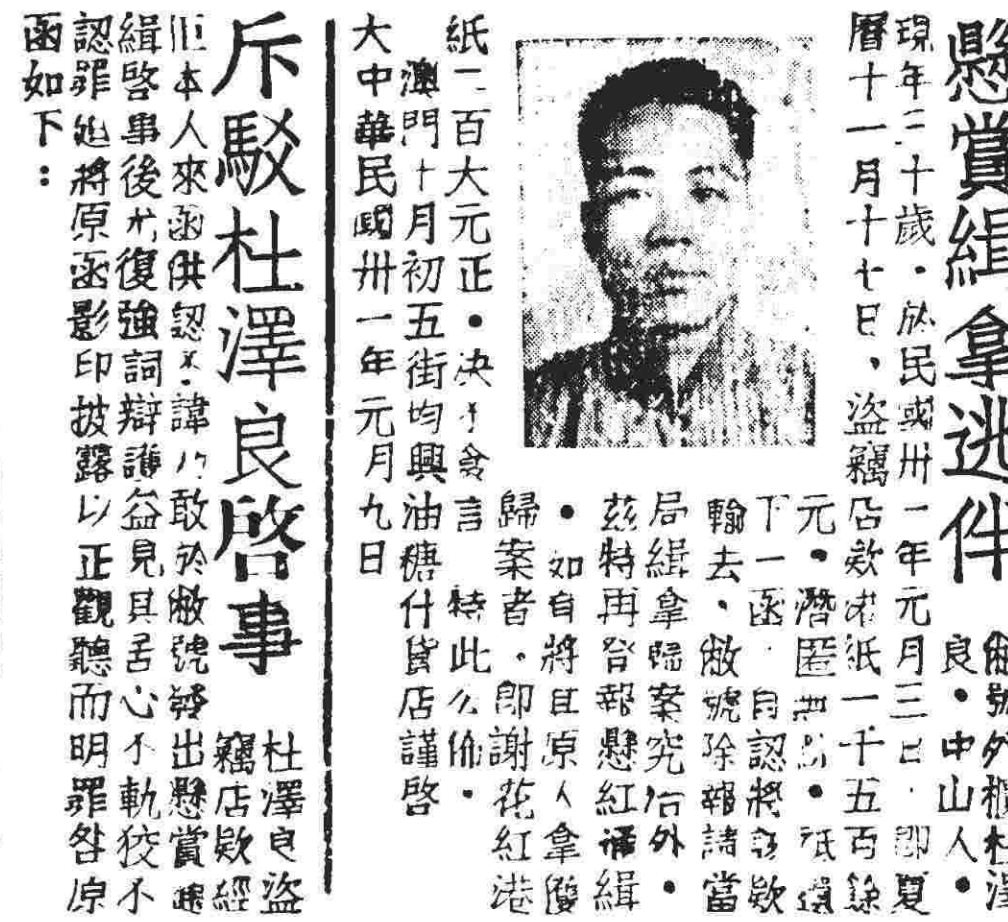 懸賞緝拿逃件
敝號外櫃杜澤
良・中山人・
現年二十歲・於民國卅一年元月三日・即夏
曆十一月十七日、盜竊店欵港紙一千五百餘
元・潛匿無・祇遺
下一函・自認將欵
輸去、敝號除報請當
局緝拿歸案究治外・
茲特再登報懸紅通緝
・如有將原人拿獲
歸案者・即謝花紅港
紙二百大元正・决不食言 特此公佈・
澳門十月初五街均興油糖什貨店謹啓
大中華民國卅一年元月九日
斥駁杜澤良啓事
杜澤良盜
竊店欵經
本人來函供認不諱乃敢於敝號發出懸賞通
緝啓事後復強詞辯護益見其居心不軌狡不
認罪將原函影印披露以正觀聽而明罪咎原
函如下：